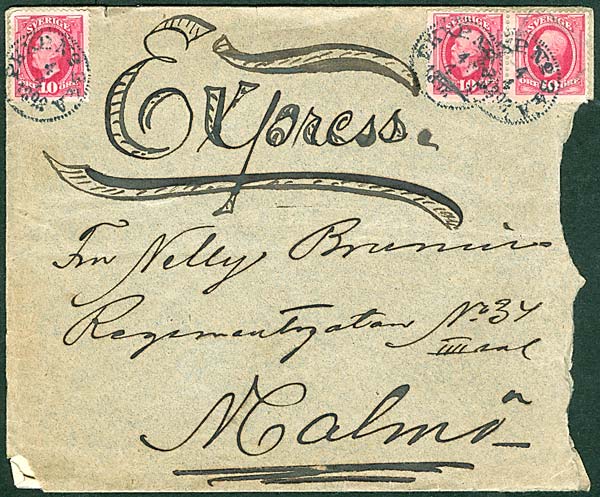 SVERIGE
10 ÖRE
SVERIGE
10 ÖRE
SVERIGE
10 ÖRE
Express.
Fru Nelly
Regementsgatan No 34
Malmö